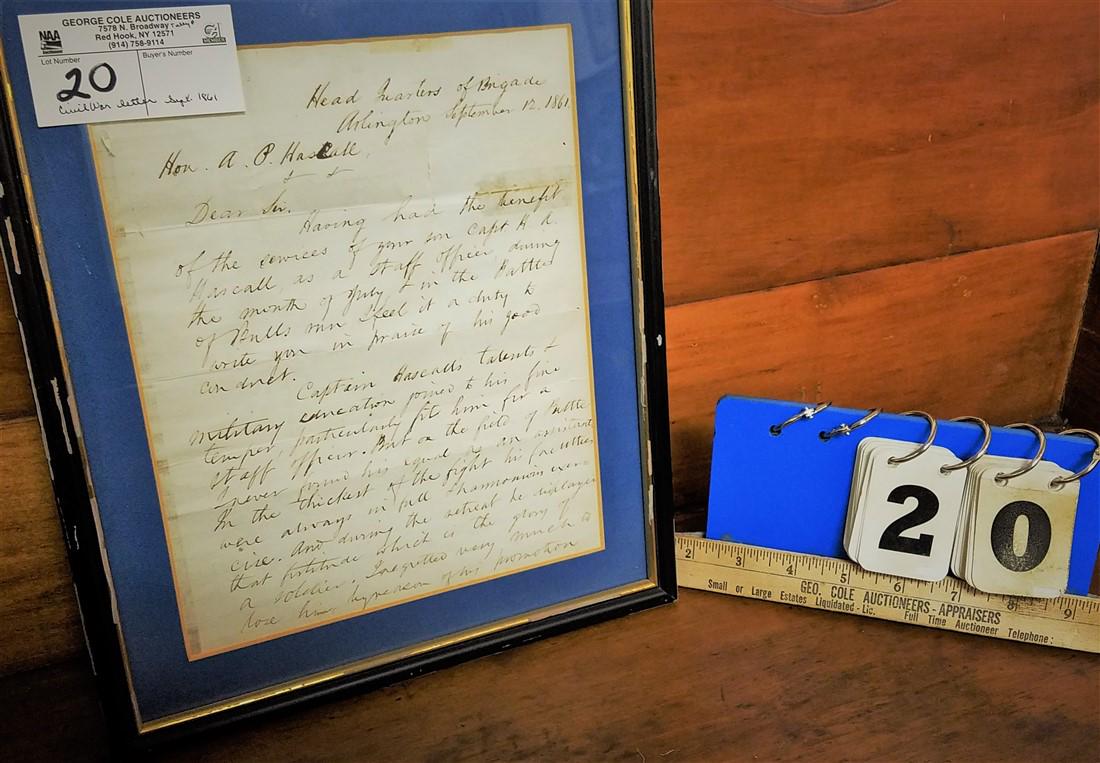 GEORGE COLE AUCTIONEERS
7578 N. Broadway
Red Hook, NY 12571
(914) 758-9114
NAA
Lot Number
Buyer's Number
20
Civil War letter Sept. 1861
Head Quarters of Brigade
Arlington September 12. 1861
Hon. A. P. Hascall,
Dear Sir.
Having had the benefit
of the services of your son Capt H. A.
Hascall, as a Staff officer, during
the month of July & in the Battle
of Bulls run I feel it a duty to
write you in praise of his good
conduct.
Captain Hascalls talents &
military education joined to his fine
temper, particularly fit him for a
Staff officer. But on the field of Battle
I never found his equal as an assistant
In the thickest of the fight his faculties
were always in full & harmonious exer-
cise. And during the retreat he displayed
that fortitude which is the glory of
a soldier. I regretted very much to
lose him, by reason of his promotion
2 0
2 3 4 5 6 7 8 9
GEO. COLE AUCTIONEERS - APPRAISERS
Small or Large Estates Liquidated - Lic. Full Time Auctioneer Telephone: